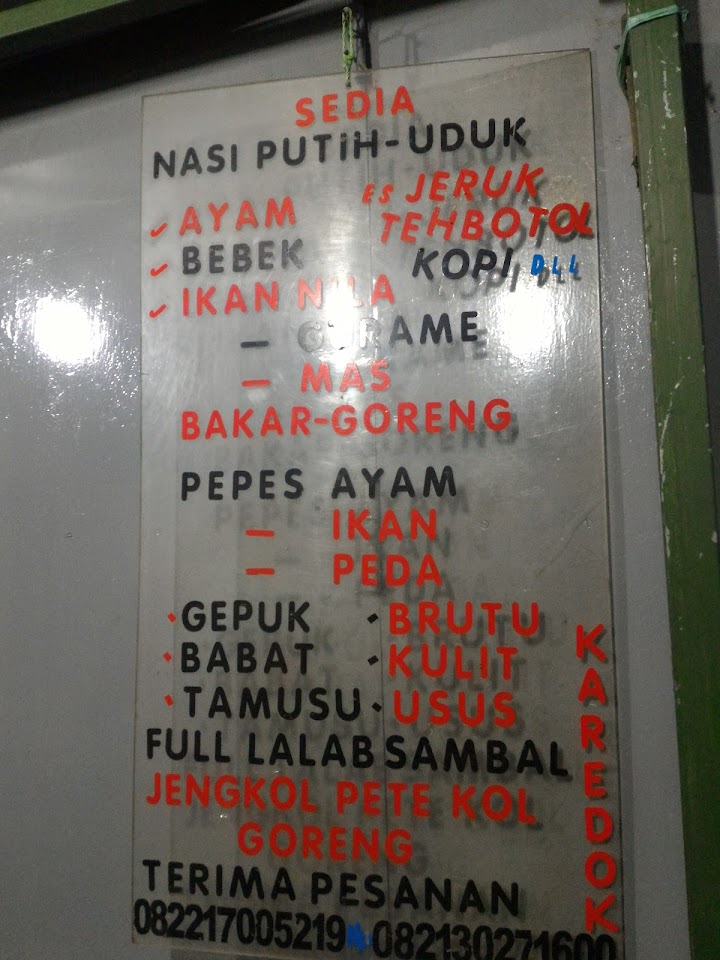 SEDIA
NASI PUTIH-UDUK
✓ AYAM
✓ BEBEK
✓ IKAN NILA
— GURAME
— MAS
BAKAR-GORENG
ES JERUK
TEHBOTOL
KOPI DLL
PEPES AYAM
— IKAN
— PEDA
• GEPUK • BRUTU
• BABAT • KULIT
• TAMUSU • USUS
KAREDOK
FULL LALAB SAMBAL
JENGKOL PETE KOL
GORENG
TERIMA PESANAN
082217005219 082130271600